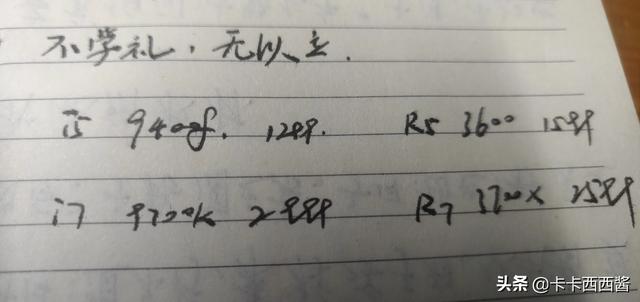 不学礼，无以立.
i5 9400f. 1299. R5 3600 1599
i7 9700k 2999 R7 3700x 2599
头条 @卡卡西西酱